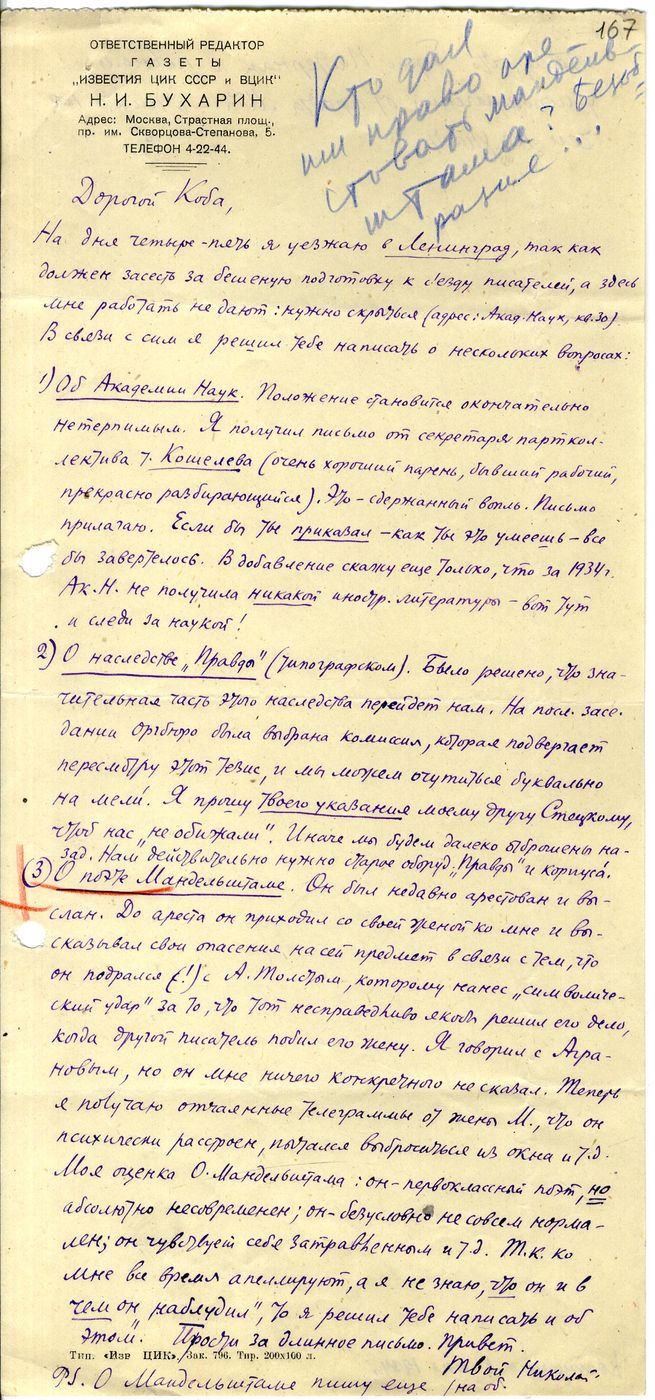 167
ОТВЕТСТВЕННЫЙ РЕДАКТОР
ГАЗЕТЫ
„ИЗВЕСТИЯ ЦИК СССР и ВЦИК“
Н. И. БУХАРИН
Адрес: Москва, Страстная площ.,
пр. им. Скворцова-Степанова, 5.
ТЕЛЕФОН 4-22-44.
Кто дал
им право аре
стовать Мандель-
штама? Безоб-
разие...
Дорогой Коба,
На дня четыре-пять я уезжаю в Ленинград, так как
должен засесть за бешеную подготовку к с'езду писателей, а здесь
мне работать не дают: нужно скрыться (адрес: Акад. Наук, кв. 30).
В связи с сим я решил тебе написать о нескольких вопросах:
1) Об Академии Наук. Положение становится окончательно
нетерпимым. Я получил письмо от секретаря парткол-
лектива т. Кошелева (очень хороший парень, бывший рабочий,
прекрасно разбирающийся). Это - сдержанный вопль. Письмо
прилагаю. Если бы ты приказал - как ты это умеешь - все
бы завертелось. В добавление скажу еще только, что за 1934 г.
Ак. Н. не получила никакой иностр. литературы - вот тут
и следи за наукой!
2) О наследстве „Правды“ (типографском). Было решено, что зна-
чительная часть этого наследства перейдет нам. На посл. засе-
дании Оргбюро была выбрана комиссия, которая подвергает
пересмотру этот тезис, и мы можем очутиться буквально
на мели. Я прошу твоего указания моему другу Стецкому,
чтоб нас „не обижали“. Иначе мы будем далеко отброшены на-
зад. Нам действительно нужно старое оборуд. „Правды“ и корпуса.
3) О поэте Мандельштаме. Он был недавно арестован и вы-
слан. До ареста он приходил со своей женой ко мне и вы-
сказывал свои опасения на сей предмет в связи с тем, что
он подрался (!) с А. Толстым, которому нанес „символиче-
ский удар“ за то, что тот несправедливо якобы решил его дело,
когда другой писатель побил его жену. Я говорил с Агра-
новым, но он мне ничего конкретного не сказал. Теперь
я получаю отчаянные телеграммы от жены М., что он
психически расстроен, пытался выброситься из окна и т.д.
Моя оценка О. Мандельштама: он - первоклассный поэт, но
абсолютно несовременен; он - безусловно не совсем норма-
лен; он чувствует себя затравленным и т.д. Т.к. ко
мне все время апеллируют, а я не знаю, что он и в
чем он „наблудил“, то я решил тебе написать и об
этом. Прости за длинное письмо. Привет.
Твой Николай
Тип. «Изв ЦИК». Зак. 796. Тир. 200х100 л.
PS. О Мандельштаме пишу еще /на об.